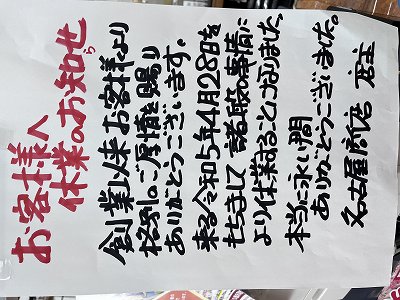 お客様へ
休業のお知らせ
創業以来お客様より
格別のご厚情を賜り
ありがとうございます。
来る令和5年4月28日を
もちまして 諸般の事情に
より休業することになりました。
本当に永い間
ありがとうございました。
名古屋商店 店主